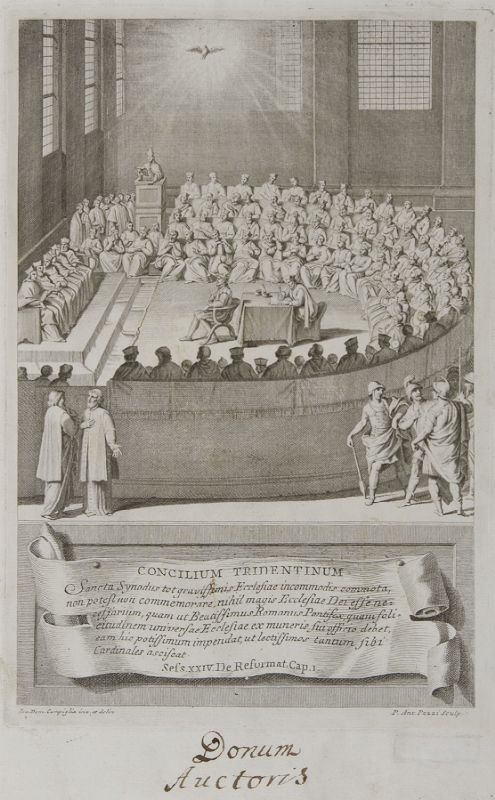 CONCILIUM TRIDENTINUM
Sancta Synodus tot gravissimis Ecclesiae incommodis commota,
non potest non commemorare, nihil magis Ecclesiae Dei esse ne-
cessarium, quam ut Beatissimus Romanus Pontifex, quam solli-
citudinem universae Ecclesiae ex muneris sui officio debet,
eam hic potissimum impendat, ut lectissimos tantum, sibi
Cardinales asciscat
Sess. XXIV. De Reformat. Cap. 1.
Io. Dom. Campiglia inv. et delin.
P. Ant. Pazzi Sculp.
Donum
Auctoris